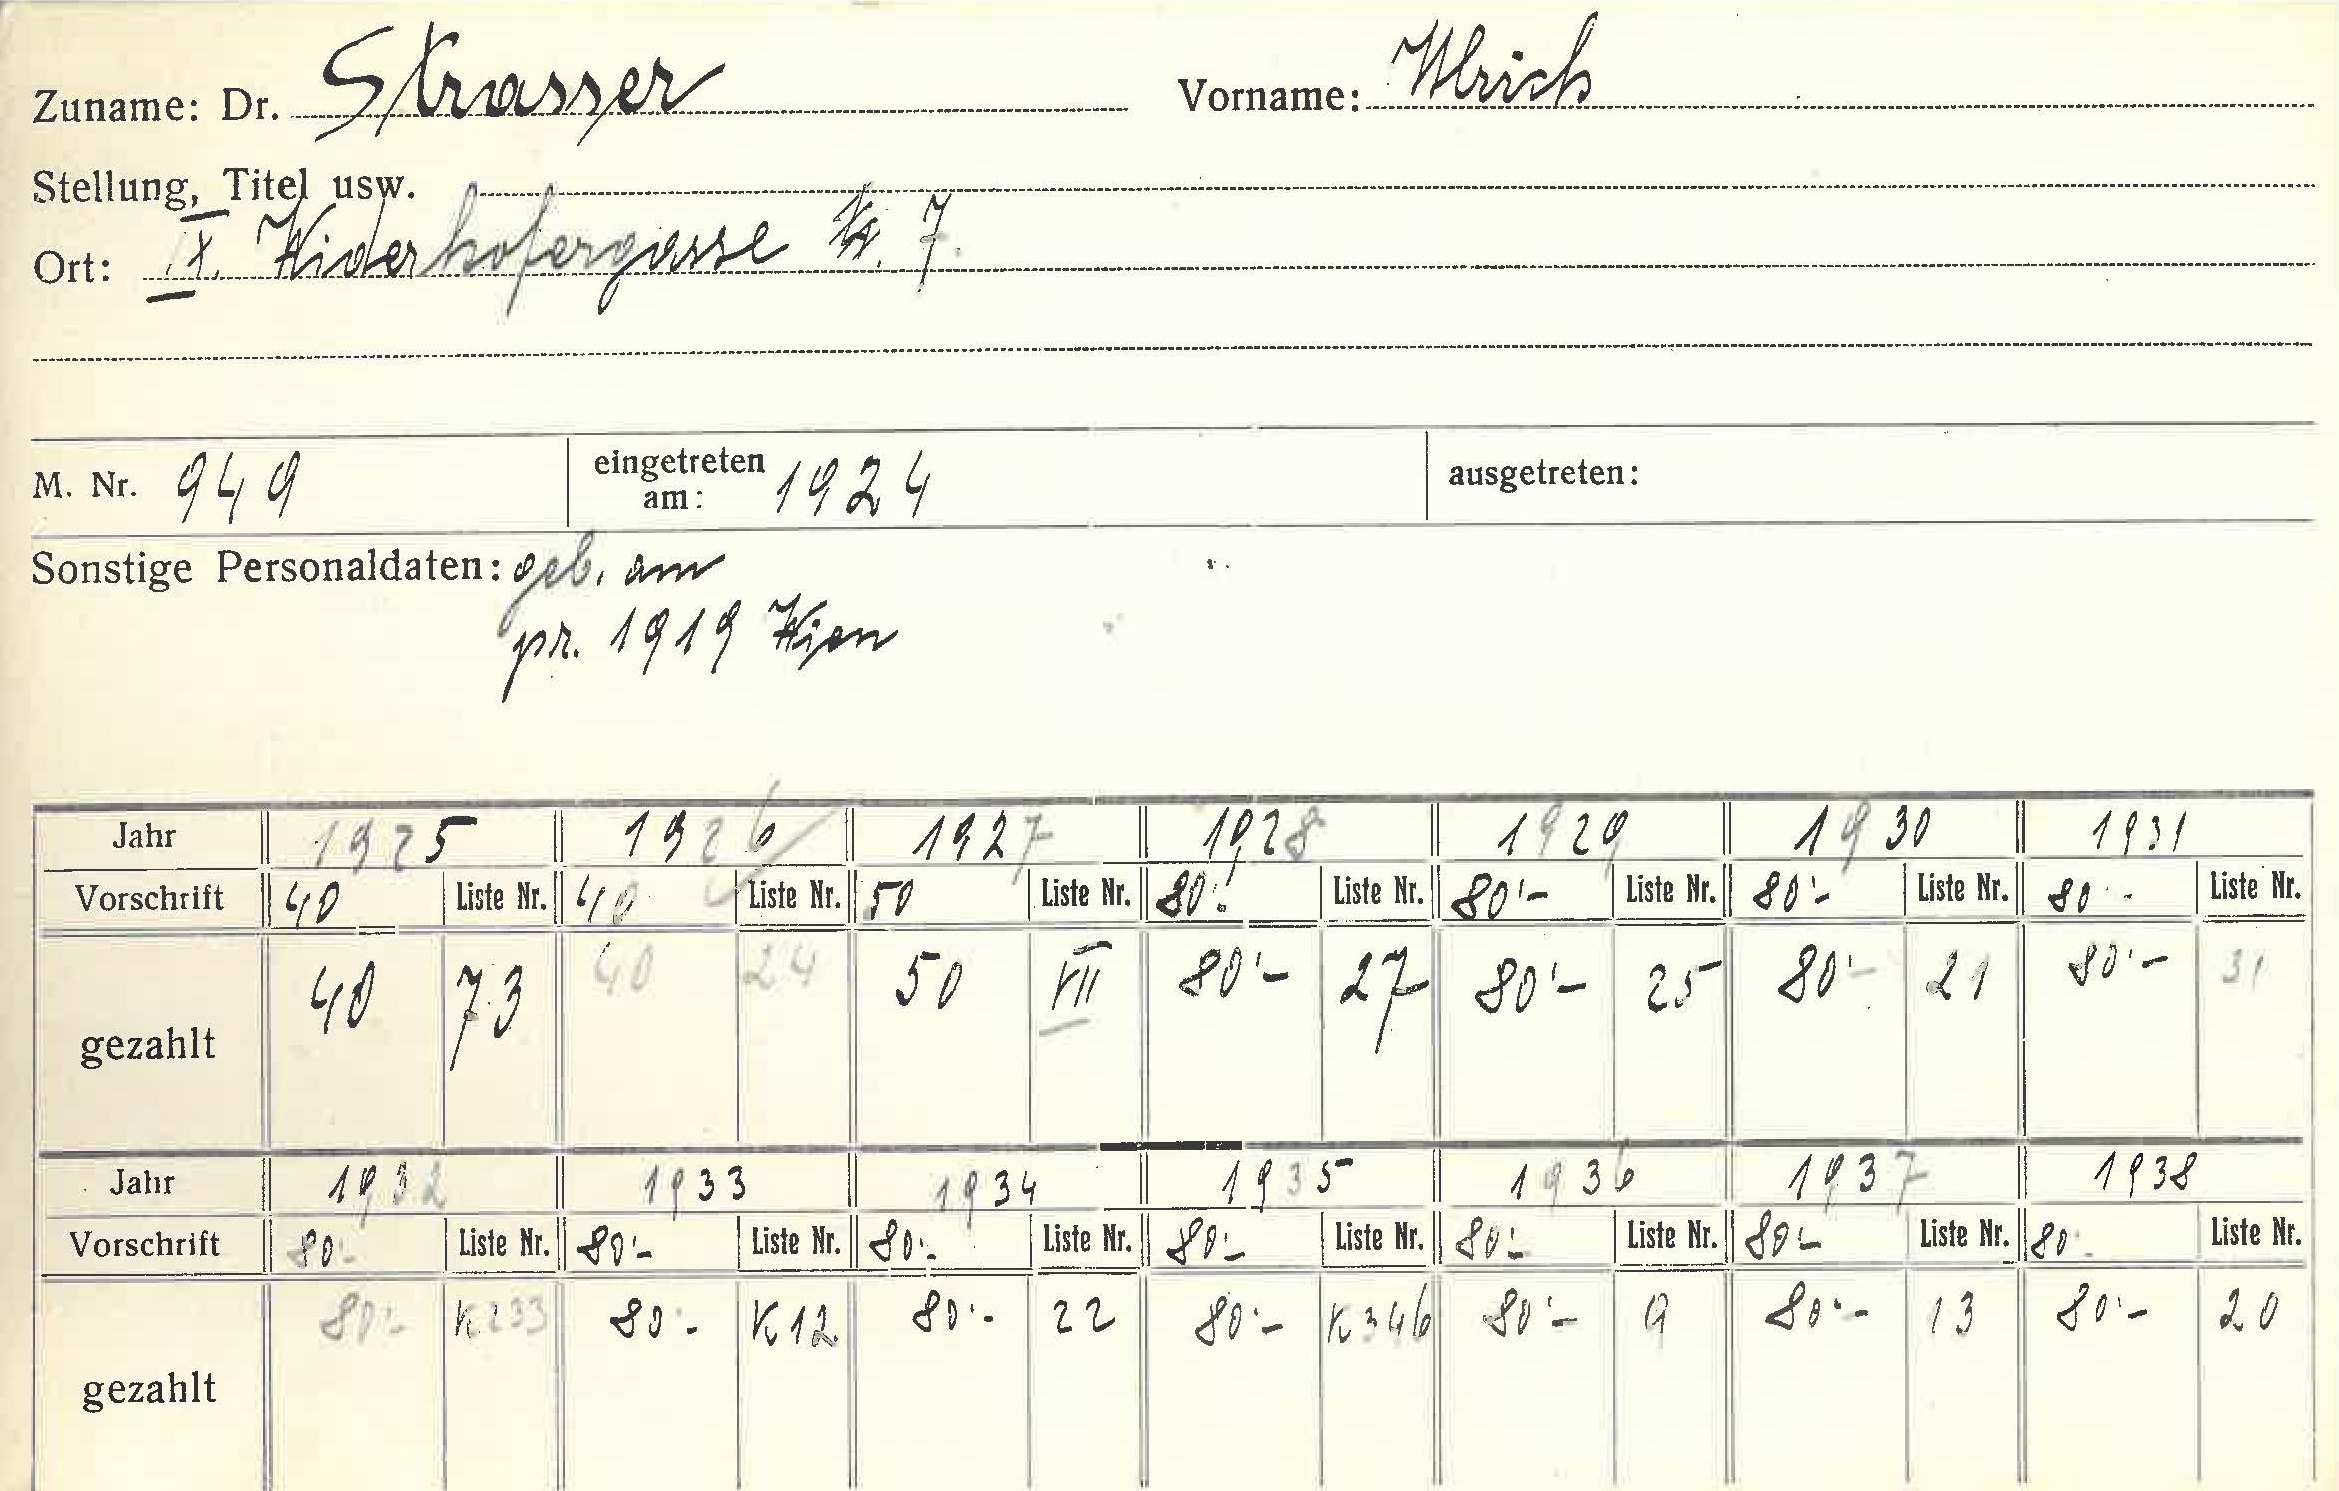 Zuname: Dr. Strasser Vorname: Ulrich
Stellung, Titel usw.
Ort: IX. Widerhofergasse Nr. 7.
M. Nr. 949 eingetreten am: 1924 ausgetreten:
Sonstige Personaldaten: geb. am
pr. 1919 Wien
Jahr 1925 1926 1927 1928 1929 1930 1931
Vorschrift 40 Liste Nr. 40 Liste Nr. 50 Liste Nr. 80'- Liste Nr. 80'- Liste Nr. 80'- Liste Nr. 80'- Liste Nr.
gezahlt 40 73 40 24 50 VII 80'- 27 80'- 25 80'- 21 80'- 31
Jahr 1932 1933 1934 1935 1936 1937 1938
Vorschrift 80'- Liste Nr. 80'- Liste Nr. 80'- Liste Nr. 80'- Liste Nr. 80'- Liste Nr. 80'- Liste Nr. 80'- Liste Nr.
gezahlt 80'- K233 80'- K12 80'- 22 80'- K346 80'- 9 80'- 13 80'- 20